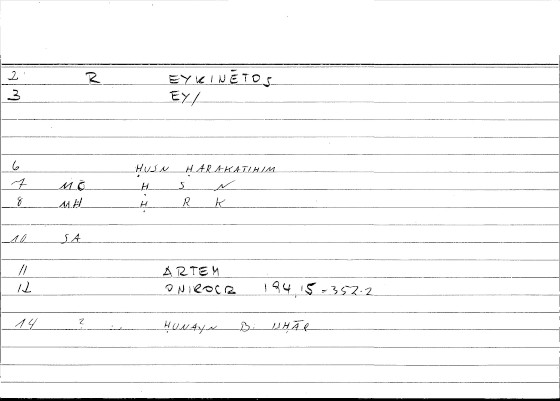 2 R EYKINĒTOS
3 EY/
6 ḤUSN ḤARAKATIHIM
7 MO Ḥ S N
8 MH Ḥ R K
10 SA
11 ARTEM
12 ONIROCR 194,15 = 352.2
14 ? ḤUNAYN B. ISḤĀQ